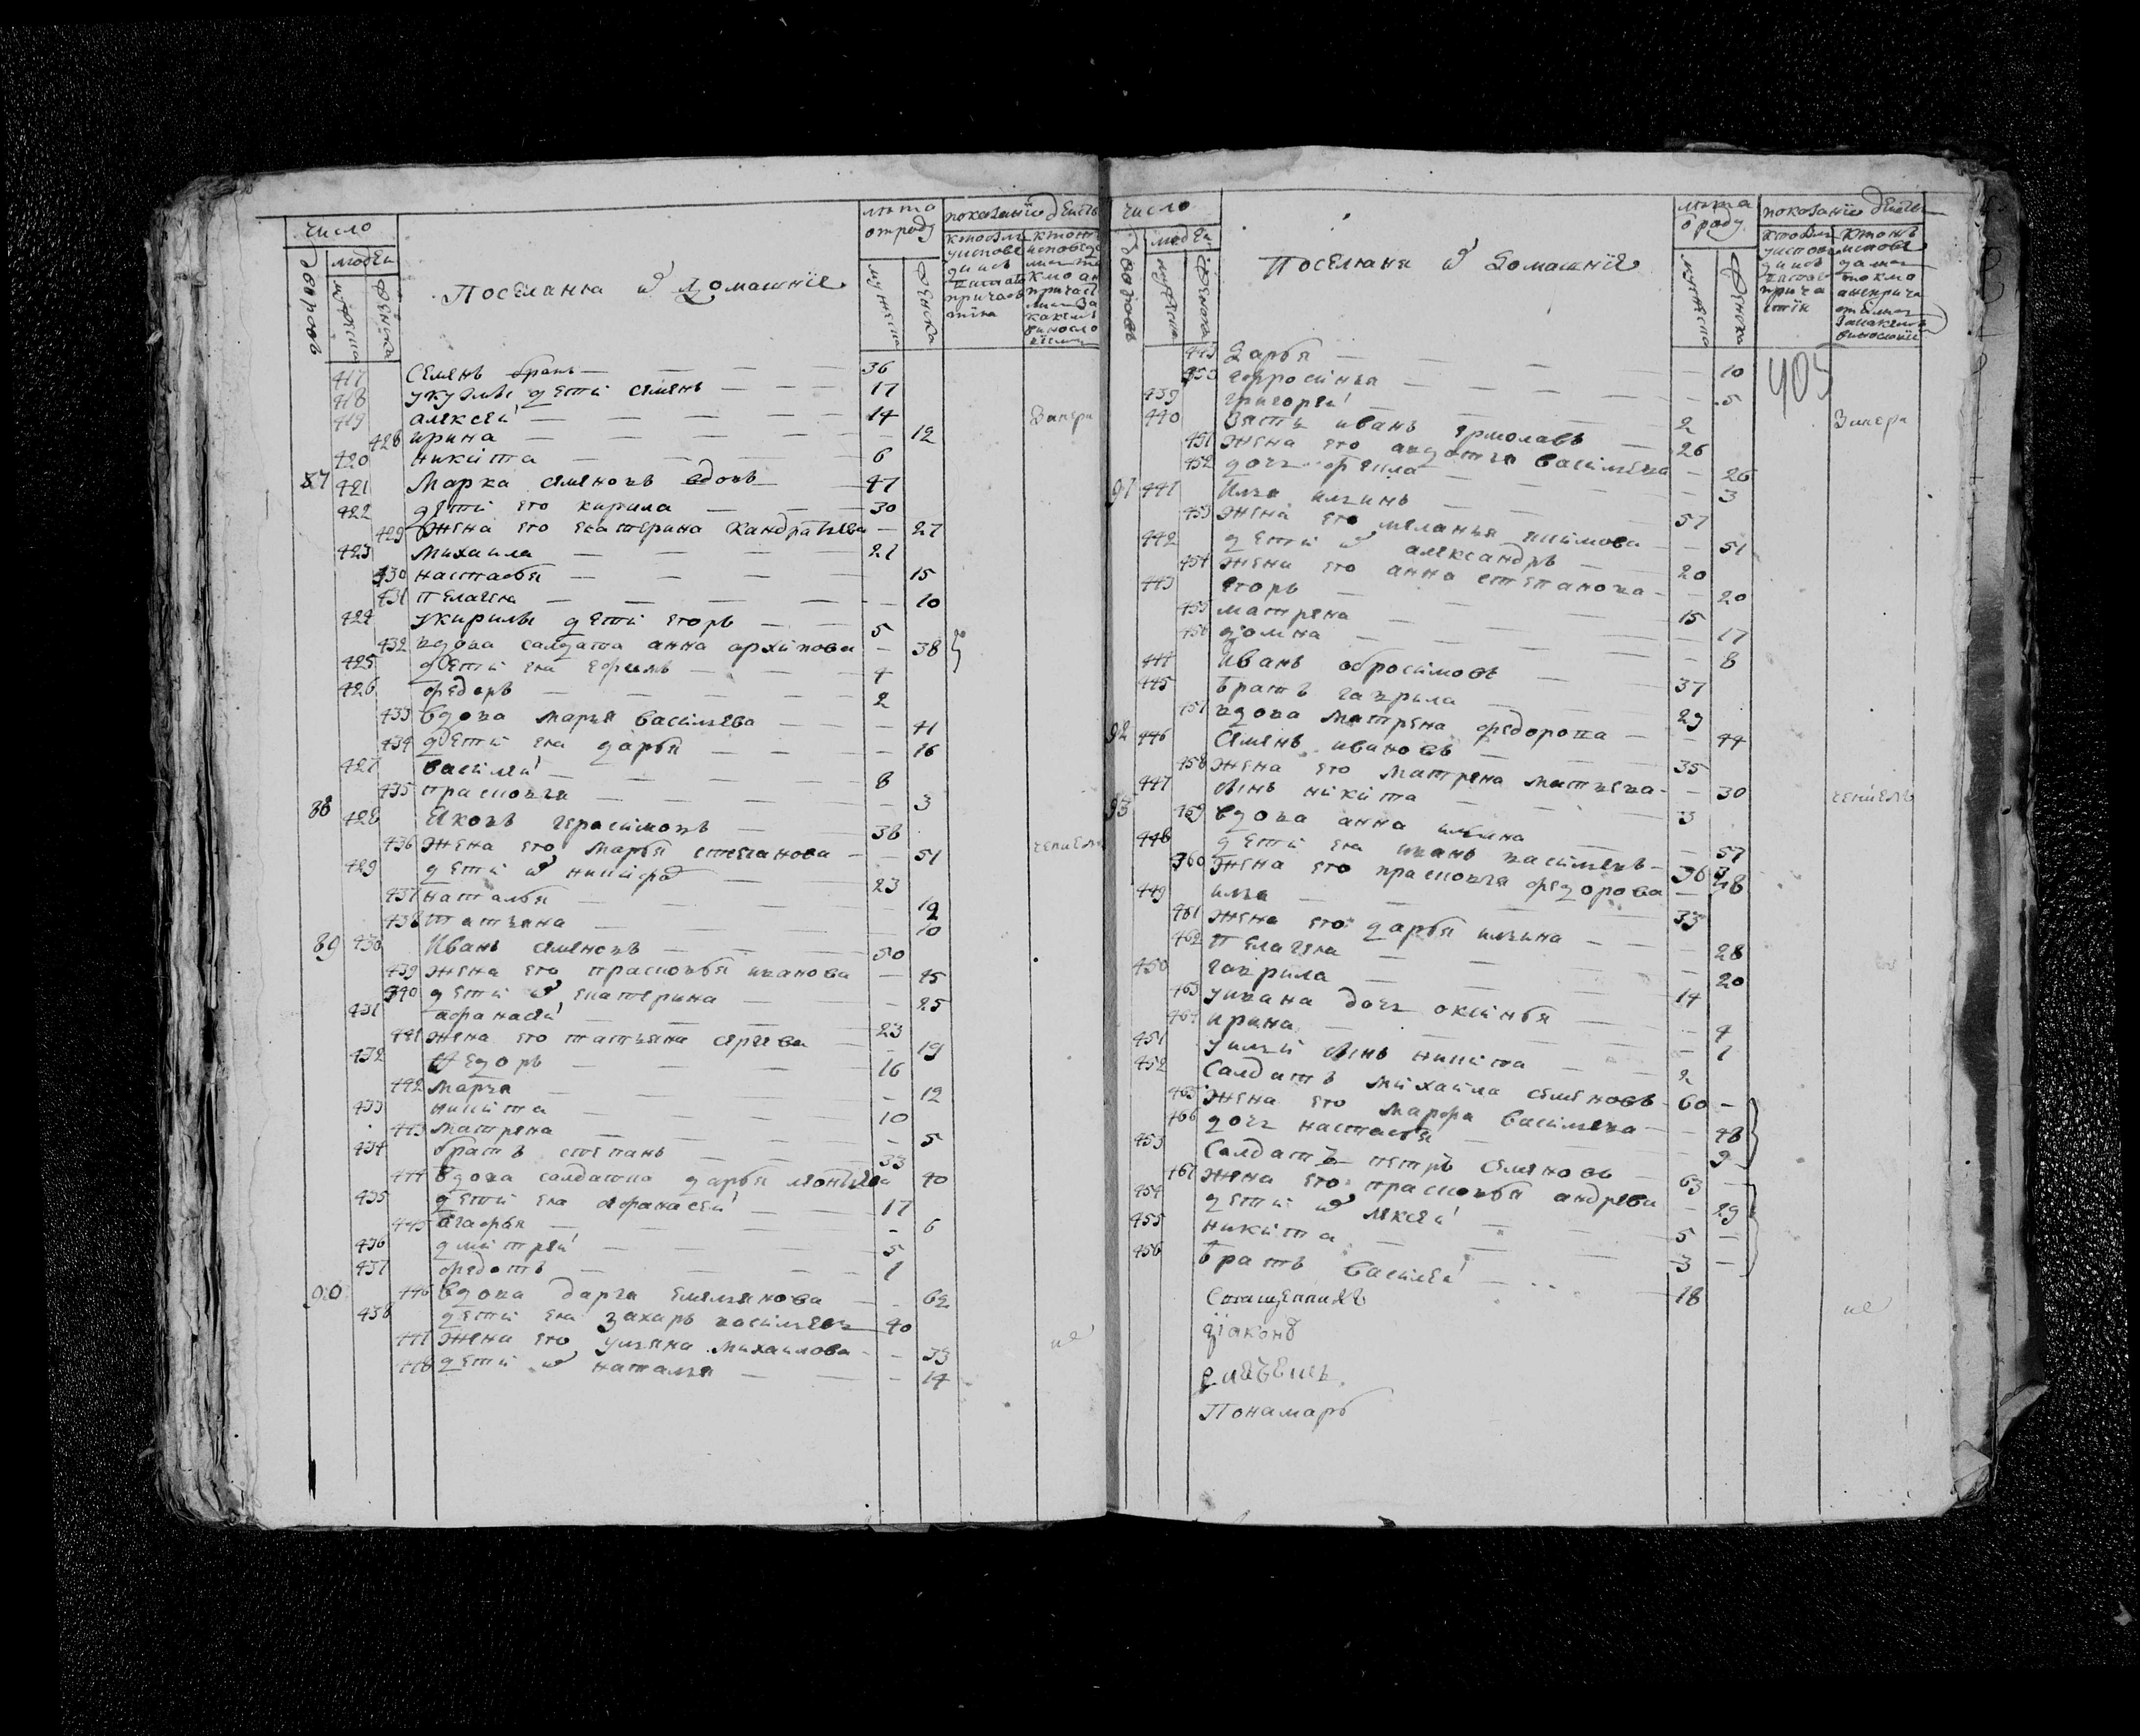 число
людей
дворовъ
мужеска
женска
Поселяна и домашнiе
лѣта
отроду
мужеска
женска
показанiе дѣйст
417 Семенъ братъ — 36
418 у кузмы дети семенъ — 17
419 алексей — 14
428 ирина — 12
420 никита — 6
87 421 Марка семеновъ вдовъ — 47
422 дети его кирила — 30
429 жена его екатерина кандратьева — 27
423 михаила — 21
430 настасья — 15
431 пелагея — 10
424 у кирилы дети егоръ — 5
432 вдова салдатка анна архипова — 38
425 дети ея ефимъ — 4
426 федоръ — 2
433 вдова марья васильева — 41
434 дети ея дарья — 16
427 василей — 8
435 прасковья — 3
88 428 Яковъ герасимовъ — 38
436 жена его марья степанова — 51
429 дети их никифоръ — 23
437 наталья — 12
438 татьяна — 10
89 430 Иванъ семеновъ — 50
439 жена его прасковья иванова — 45
440 дети их екатерина — 25
431 афанасей — 23
441 жена его татьяна сергева — 19
432 федоръ — 16
442 марья — 12
433 никита — 10
443 матрена — 5
434 братъ степанъ — 33
444 вдова салдатка дарья леонтьева 40
435 дети ея афанасей — 17
445 агафья — 6
436 дмитрей — 5
437 федотъ — 1
90 446 вдова дарья емельянова — 62
438 дети ея захаръ васильевъ — 40
447 жена его ульяна михаилова — 33
448 дети их наталья — 14
число
людей
дворовъ
мужеска
женска
Поселяна и домашнiе
лѣта
о роду
мужеска
женска
показанiе дѣйст
405
449 дарья — 10
450 ефросинья — 5
439 григорей — 2
440 зять иванъ ермолаевъ — 26
451 жена его авдотья васильева — 26
452 дочь фекла — 3
91 441 Илья ильинъ — 57
453 жена его меланья екимова — 51
442 дети их александръ — 20
454 жена его анна степанова — 20
443 егоръ — 15
455 матрена — 17
456 домна — 8
444 Иванъ обросимовъ — 37
445 братъ гаврила — 29
457 вдова матрена федорова — 44
92 446 Семенъ ивановъ — 35
458 жена его матрена матвева — 30
447 сынъ никита — 3
93 459 вдова анна ильина — 57
448 дети ея иванъ васильевъ — 36
460 жена его прасковья федорова — 38
449 илья — 33
461 жена его дарья ильина — 28
462 пелагея — 20
450 гаврила — 14
463 у ивана дочь оксинья — 4
464 ирина — 1
451 у ильи сынъ никита — 2
452 Салдатъ михайла семеновъ — 60
465 жена его марфа васильева — 48
466 дочь настасья — 9
453 Салдатъ петръ семеновъ — 63
467 жена его прасковья андрева — 29
454 дети их алексей — 5
455 никита — 3
456 братъ василей — 18
Священникъ
Дiаконъ
Понамарь